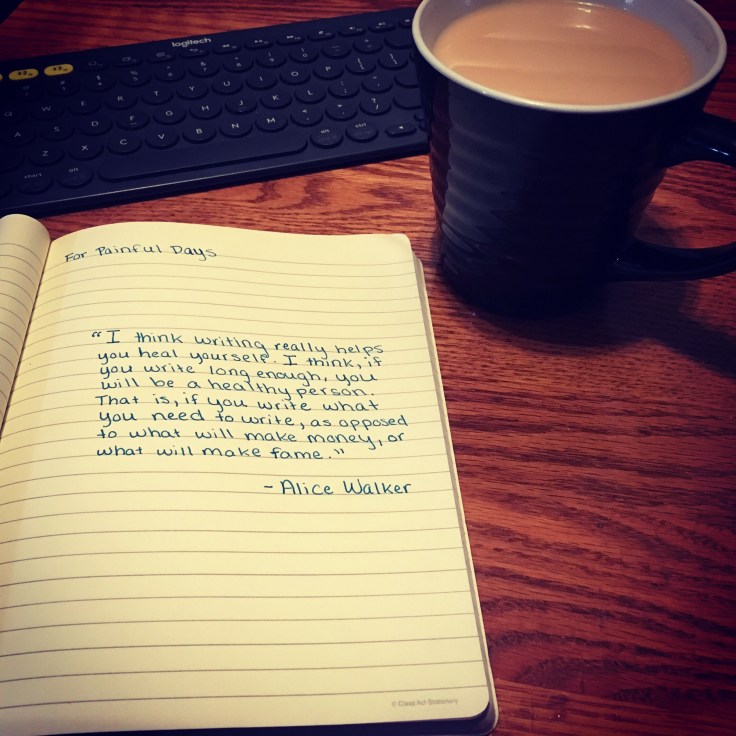 logitech
Q W E R T Y U I O P
A S D F G H J K L
Z X C V B N M
start alt alt ctrl
For Painful Days
"I think writing really helps
you heal yourself. I think, if
you write long enough, you
will be a healthy person.
That is, if you write what
you need to write, as opposed
to what will make money, or
what will make fame."
- Alice Walker
© Class Act Stationery